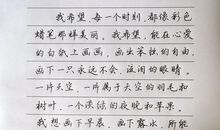 我希望,每一个时刻,都像彩色
蜡笔那样美丽。我希望,能在心爱
的白纸上画画,画出笨拙的自由,
画下一只永远不会,流泪的眼睛。
一片天空,一片属于天空的羽毛和
树叶,一个淡绿的夜晚和苹果。
我想画下早晨,画下露水,所能